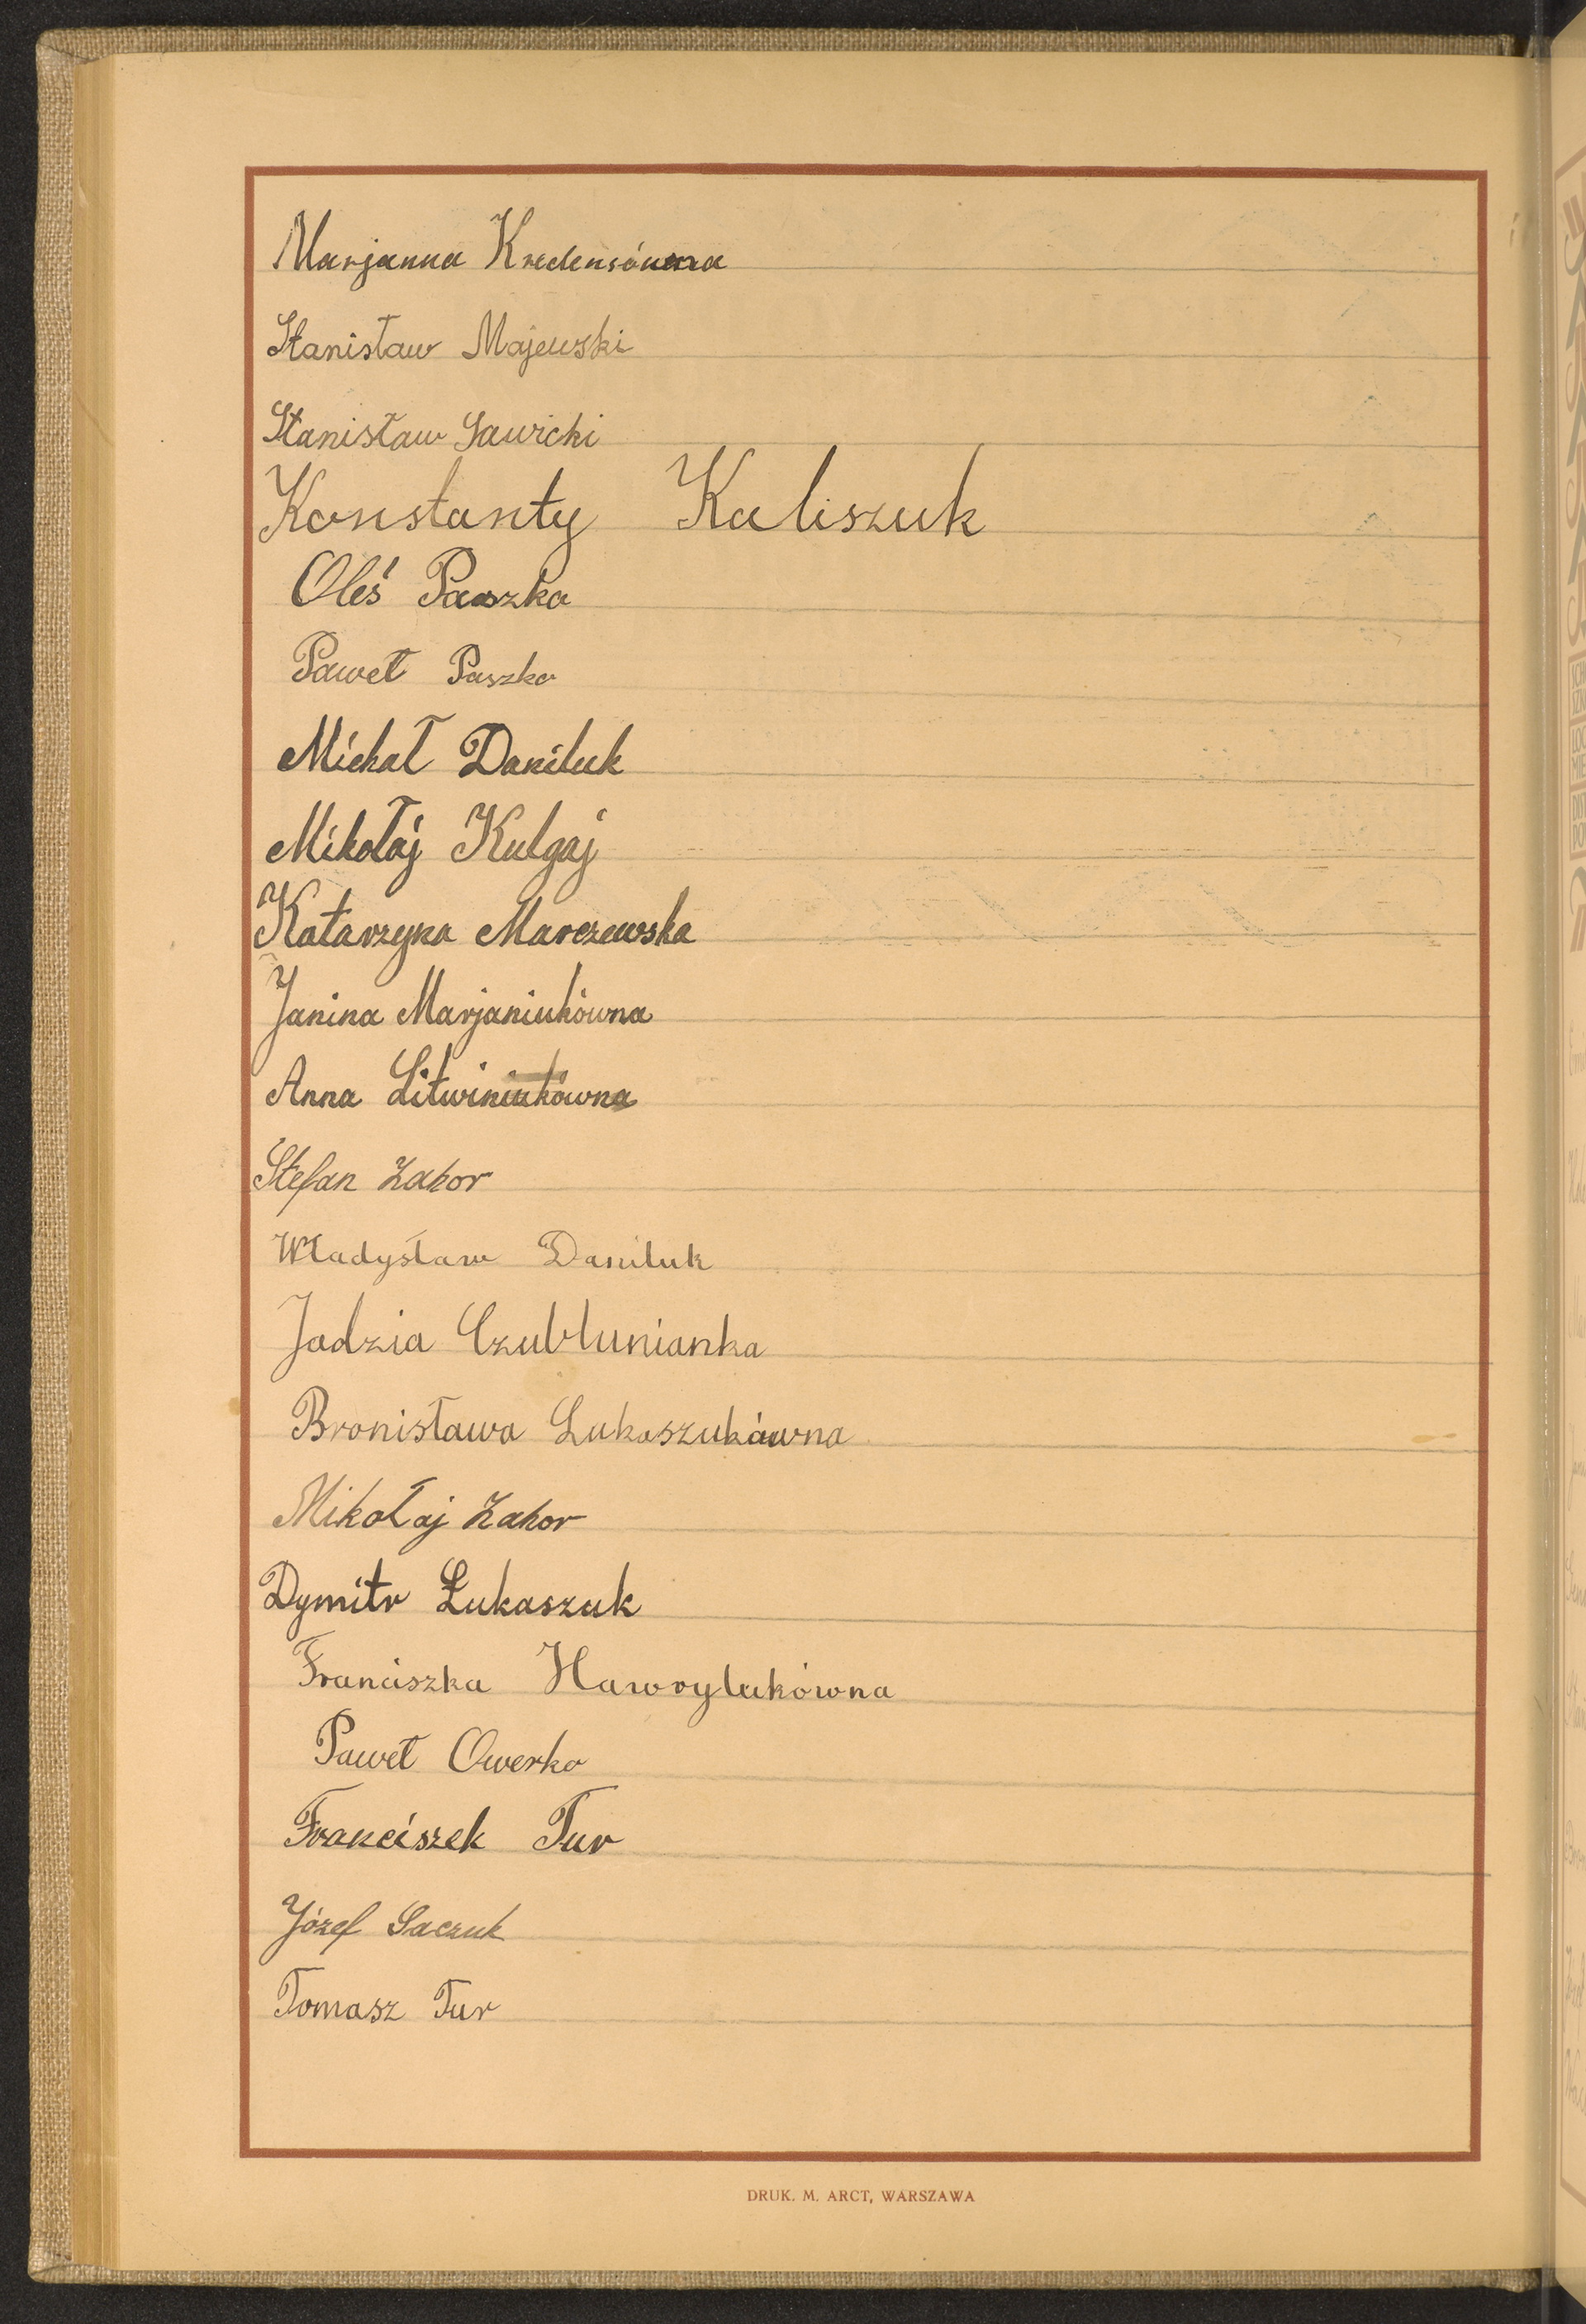 Marjanna Kredensówna
Stanisław Majewski
Stanisław Sawicki
Konstanty Kaliszuk
Oleś Paszko
Paweł Paszko
Michał Daniluk
Mikołaj Kulgaj
Katarzyna Marczewska
Janina Marjaniukówna
Anna Litwiniukówna
Stefan Zahor
Władysław Daniluk
Jadzia Czublunianka
Bronisława Lukaszukówna
Mikołaj Zahor
Dymitr Łukaszuk
Franciszka Hawrylukówna
Paweł Owerko
Franciszek Tur
Józef Saczuk
Tomasz Tur
DRUK. M. ARCT, WARSZAWA